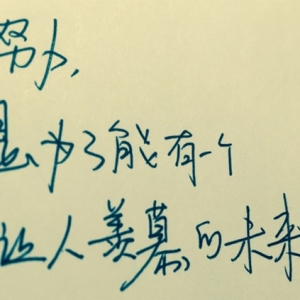 努力,
是为了能有一个
让人羡慕的未来